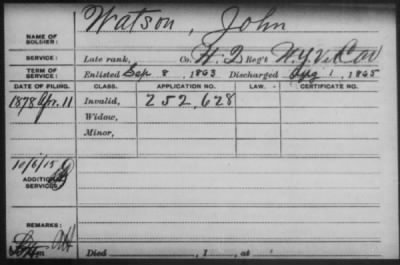 Watson, John
NAME OF SOLDIER:
SERVICE: Late rank, Co. H. 2 Reg't N.Y. V. Cav
TERM OF SERVICE: Enlisted Sep. 8, 1863 Discharged Aug 1, 1865
DATE OF FILING. CLASS. APPLICATION NO. LAW. CERTIFICATE NO.
1878 Apr. 11 Invalid, 252,628
Widow,
Minor,
10/6/15
ADDITIONAL SERVICES
REMARKS:
Died , 1 , at